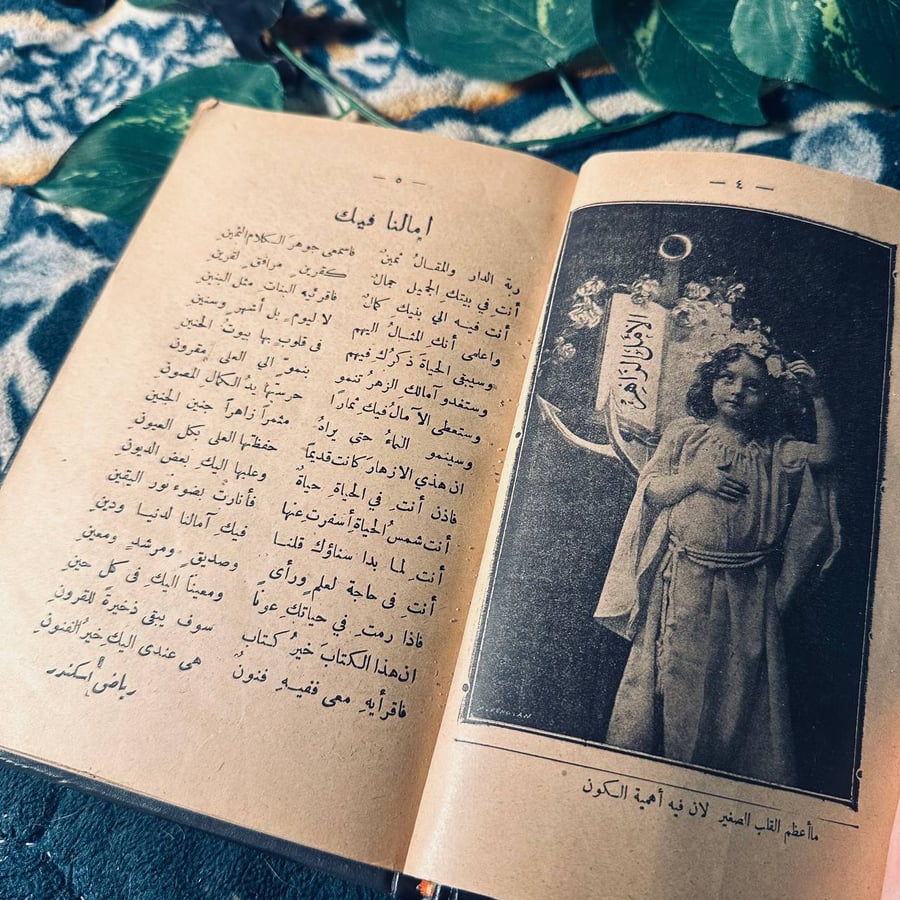 — ٤ —
الامل الزاهر
ماأعظم القلب الصغير لان فيه أهمية السكون
— ٥ —
امالنا فيك
ربة الدار والمقالُ ثمينٌ فاسمعى جوهرَ الكلام الثمين
أنت في بيتكِ الجميل جمالٌ كقرينٍ مرافقٍ لقرين
أنت فيه الي بنيك كمالٌ فاقرئيه البنات مثل البنين
واعلمى أنك المثالُ اليهم لا ليومٍ بل أشهرٍ وسنين
وسيبقى الحياةَ ذكركُ فيهم فى قلوبٍ بها بيوتُ الحنين
وستغدو آمالك الزهرُ تنمو بنموٍّ الي العلى مقرون
وستعطى الآمالُ فيك ثمارا حرستها يدُ الكمال المصون
وسينمو النماءُ حتى يراهُ مثمراً زاهراً جنين الجنين
ان هذي الازهارَ كانت قديماً حفظتها العلى بكل العيون
فاذن أنتِ في الحياةِ حياةٌ وعليها اليك بعض الديون
أنت شمسُ الحياة أسفرتِ عنها فأنارتْ بضوء نور اليقين
أنتِ لما بدا سناؤك قلنا فيكِ آمالنا لدنيا ودين
أنتِ فى حاجة لعلمٍ ورأىٍ وصديقٍ ومرشدٍ ومعين
فاذا رمتِ في حياتكِ عونا ومعينا اليك فى كل حين
ان هذا الكتابَ خيرُ كتاب سوف يبقى ذخيرةً للقرون
فاقرأيهِ معى ففيهِ فنونٌ هى عندى اليكِ خيرُ الفنونِ
رياضى إسكندر